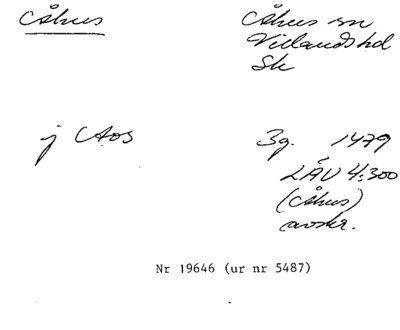 Åhus
Åhus sn
Villands hd
Sk
j Aos
3g. 1479
LÄU 4:300
(Åhus)
avskr.
Nr 19646 (ur nr 5487)